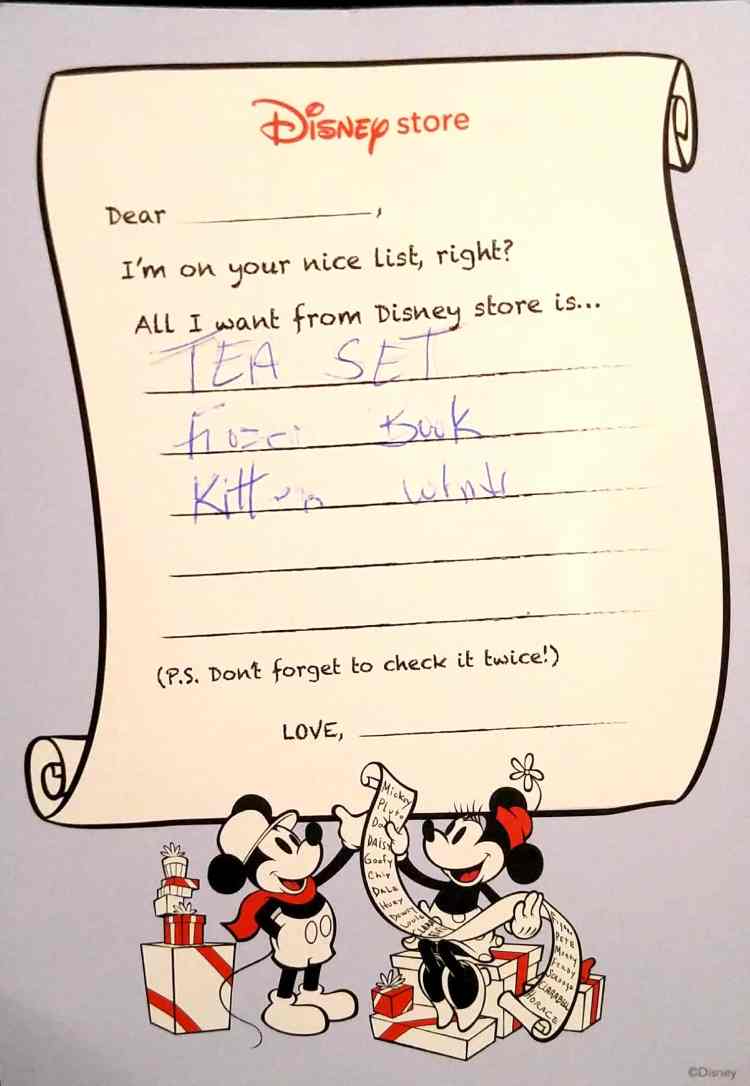 Disney store
Dear ,
I'm on your nice list, right?
All I want from Disney store is...
TEA SET
Book
Kitten
(P.S. Don't forget to check it twice!)
LOVE,
Mickey
Pluto
DAISY
Goofy
Chip
DALE
Huey
Dewey
Louie
PETE
CLARABELLE
HORACE
©Disney